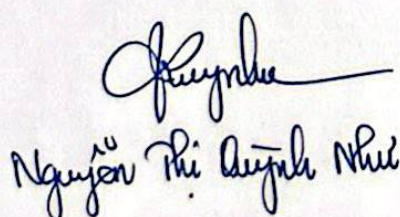 Quynhu
Nguyễn Thị Quỳnh Như